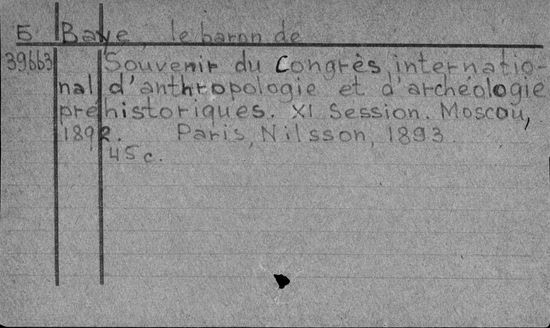 Б Baye, le baron de
39663 Souvenir du Congrès internatio-
nal d'anthropologie et d'archéologie
préhistoriques. XI Session. Moscou,
1892. Paris, Nilsson, 1893.
45 c.